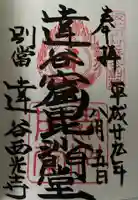 奉拝
平成廿九年
八月五日
達谷窟毘沙門堂
別當
達谷西光寺